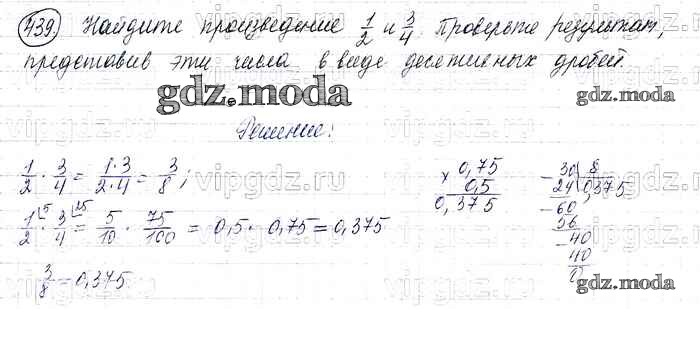 439. Найдите произведение 1/2 и 3/4. Проверьте результат,
представив эти числа в виде десятичных дробей.
gdz.moda
gdz.moda
Решение:
1/2 · 3/4 = 1·3/2·4 = 3/8;
1/2 · 3/4 = 5/10 · 75/100 = 0,5 · 0,75 = 0,375
3/8 = 0,375
× 0,75
0,5
0,375
30 | 8
24 | 0,375
60
56
40
40
0
gdz.moda
vipgdz.ru